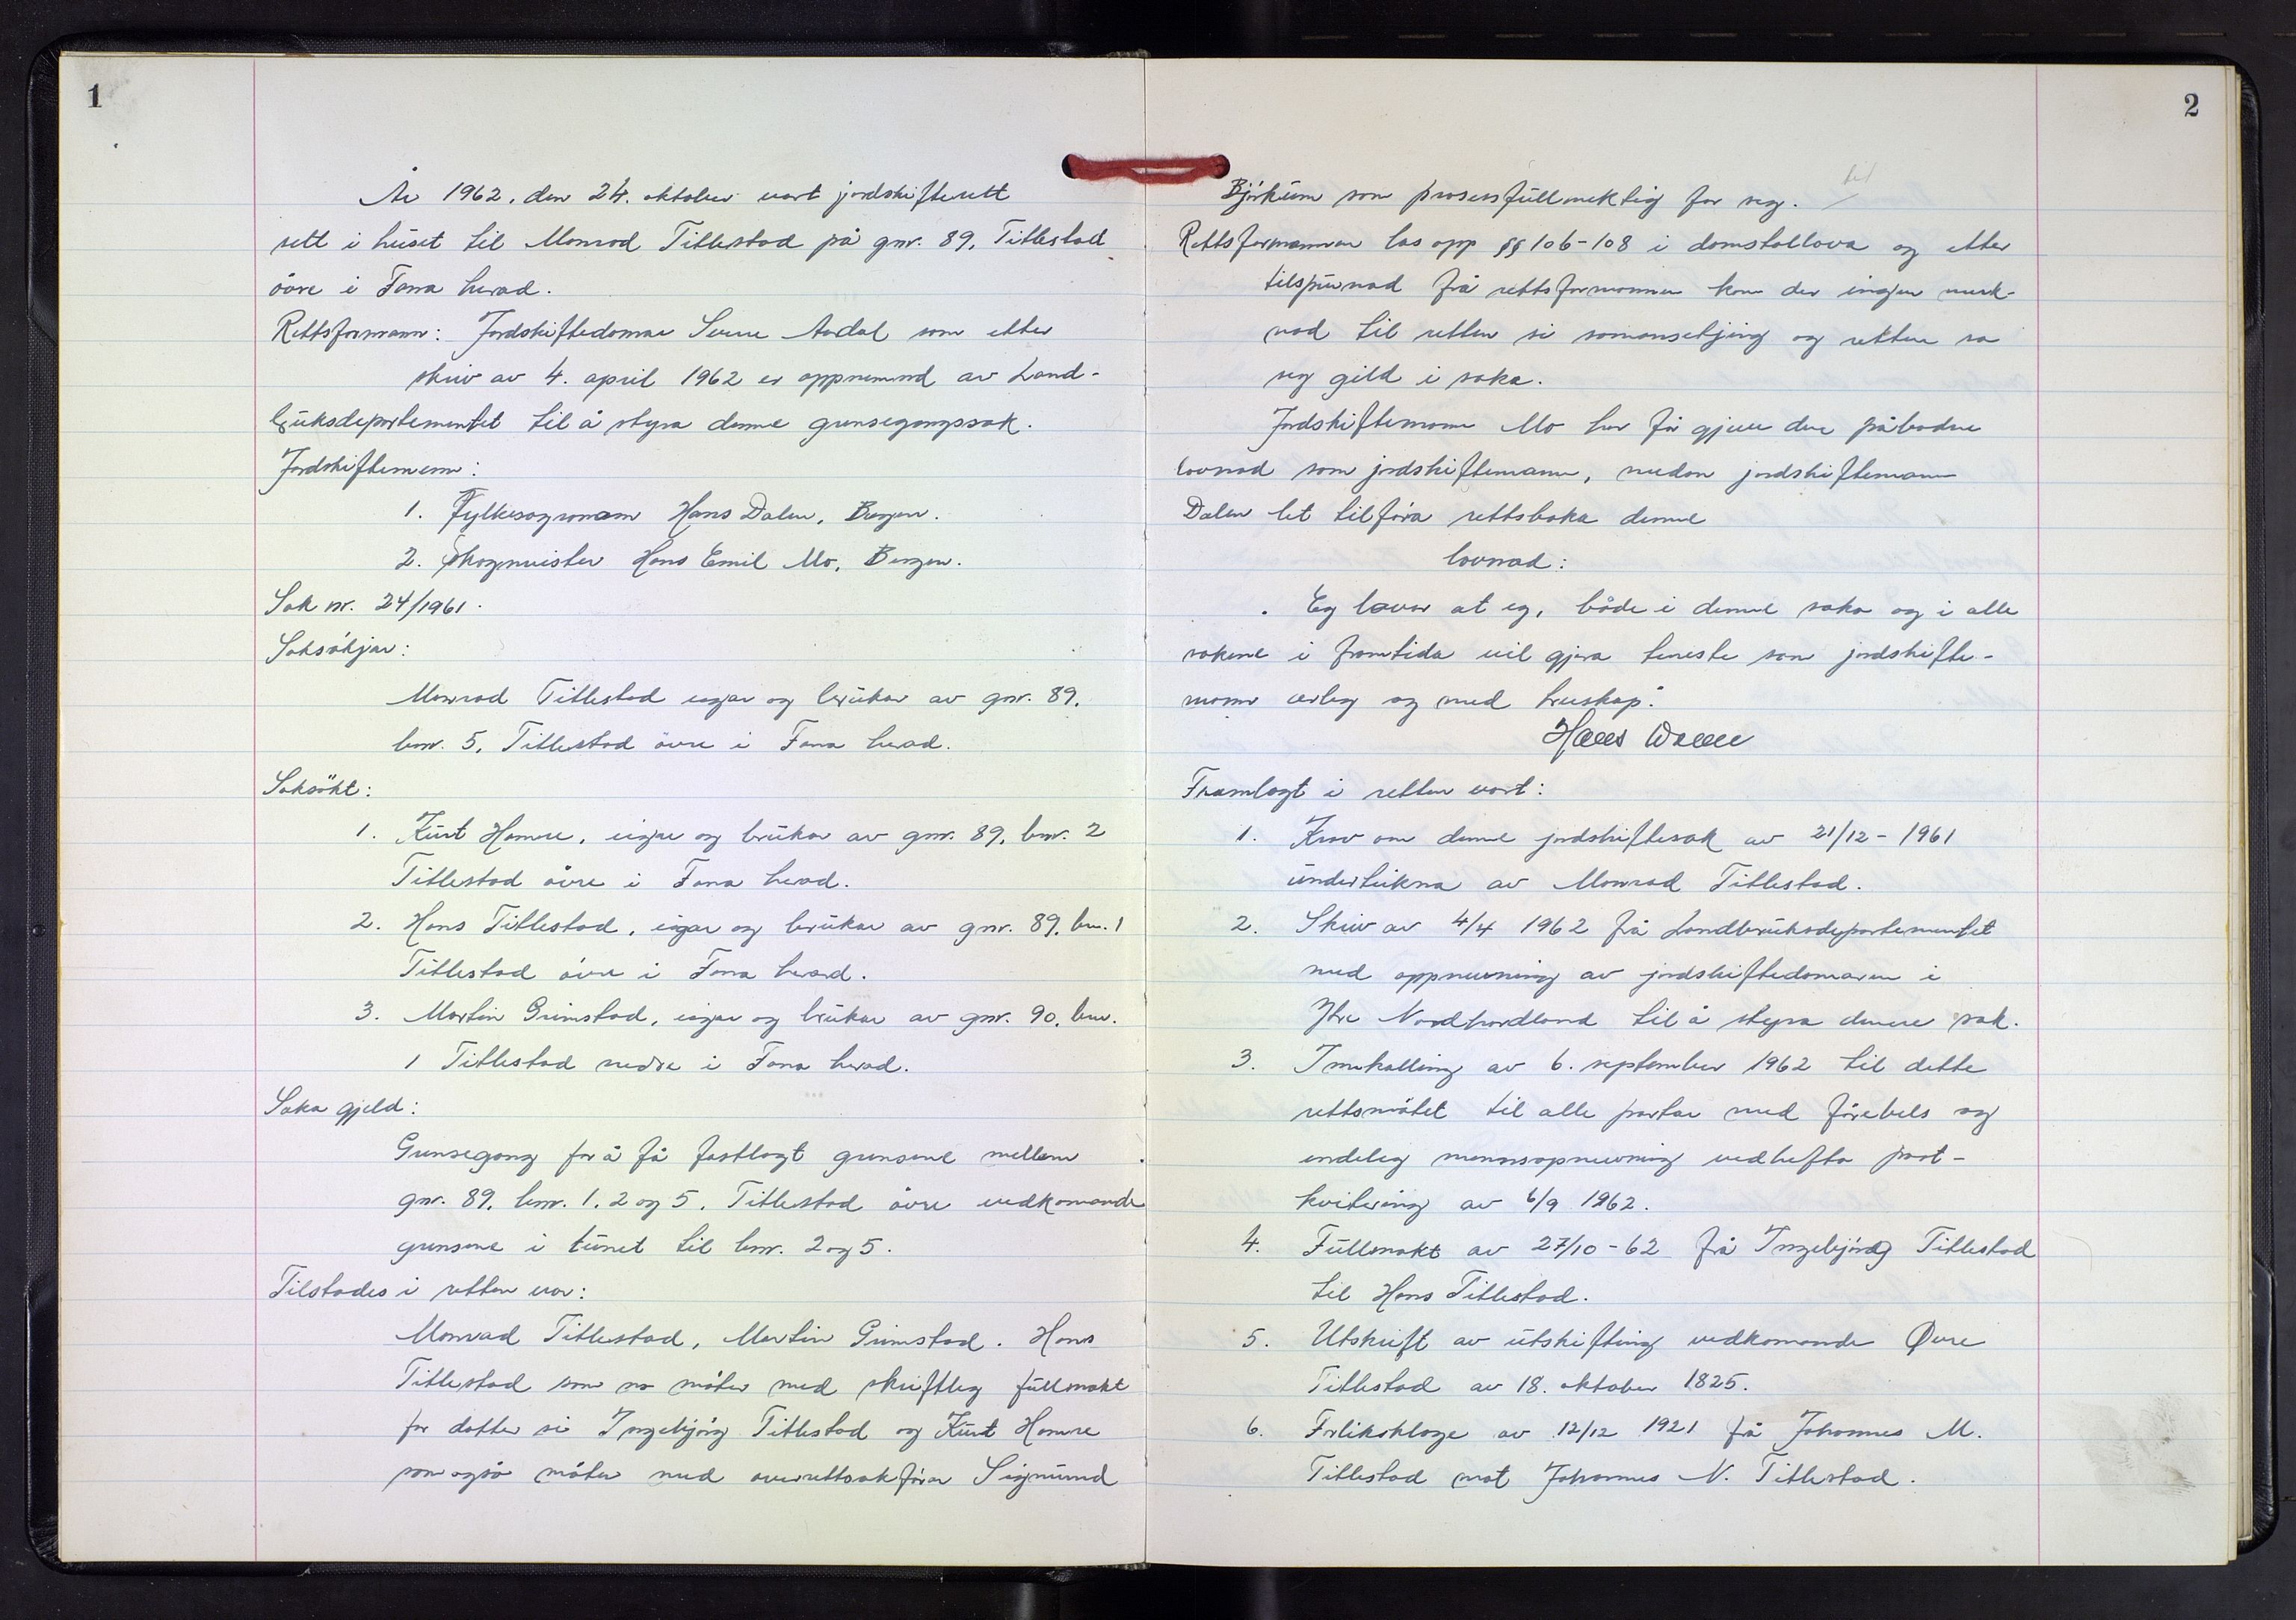 1
År 1962, den 24. oktober vart jordskifterett
sett i huset til Monrad Titlestad på gnr. 89, Titlestad
övre i Fana herad.
Rettsformann: Jordskiftedomar Sverre Aadal som etter
skriv av 4. april 1962 er oppnemnd av Land-
bruksdepartementet til å styra denne grensegangssak.
Jordskiftemenn:
1. Fylkesagronom Hans Dalen, Bergen.
2. Skogmeister Hans Emil Mo, Bergen.
Sak nr. 24/1961.
Saksökjar:
Monrad Titlestad eigar og brukar av gnr. 89,
bnr. 5, Titlestad övre i Fana herad.
Saksökt:
1. Kurt Hamre, eigar og brukar av gnr. 89, bnr. 2
Titlestad övre i Fana herad.
2. Hans Titlestad, eigar og brukar av gnr. 89, bnr. 1
Titlestad övre i Fana herad.
3. Martin Grimstad, eigar og brukar av gnr. 90, bnr.
1 Titlestad nedre i Fana herad.
Saka gjeld:
Grensegang for å få fastlagt grensene mellom
gnr. 89, bnr. 1, 2 og 5, Titlestad övre vedkomande
grensene i tunet til bnr. 2 og 5.
Tilstades i retten var:
Monrad Titlestad, Martin Grimstad, Hans
Titlestad som no möter med skriftleg fullmakt
for dotter si Ingebjörg Titlestad og Kurt Hamre
som også möter med overrettsakförar Sigmund
2
til
Björkum som prosessfullmektig for seg.
Rettsformannen las opp §§ 106-108 i domstollova og etter
tilspurnad frå rettsformannen kom der ingen merk-
nad til retten si samansetjing og retten sa
seg gild i saka.
Jordskiftemann Mo har för gjeve den påbodne
lovnad som jordskiftemann, medan jordskiftemann
Dalen let tilföra rettsboka denne
lovnad:
"Eg lovar at eg, både i denne saka og i alle
sakene i framtida vil gjera teneste som jordskifte-
mann ærleg og med truskap."
Hans Dalen
Framlagt i retten vart:
1. Krav om denne jordskiftesak av 21/12-1961
underteikna av Monrad Titlestad.
2. Skriv av 4/4 1962 frå Landbruksdepartementet
med oppnemning av jordskiftedomaren i
Ytre Nordhordland til å styra denne sak.
3. Innkalling av 6. september 1962 til dette
rettsmötet til alle partar med förebels og
endeleg mannsopnemning vedhefta post-
kvitering av 6/9 1962.
4. Fullmakt av 27/10-62 frå Ingebjörg Titlestad
til Hans Titlestad.
5. Utskrift av utskifting vedkomande Øvre
Titlestad av 18. oktober 1825.
6. Forliksklage av 12/12 1921 frå Johannes M.
Titlestad mot Johannes N. Titlestad.